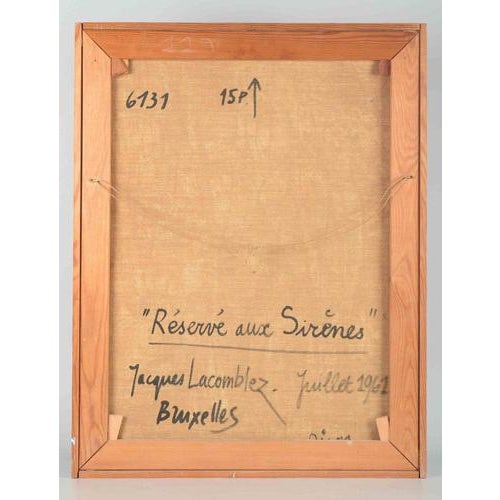 6131 15P.↑
"Réservé aux Sirènes"
Jacques Lacomblez. Juillet 1961
Bruxelles